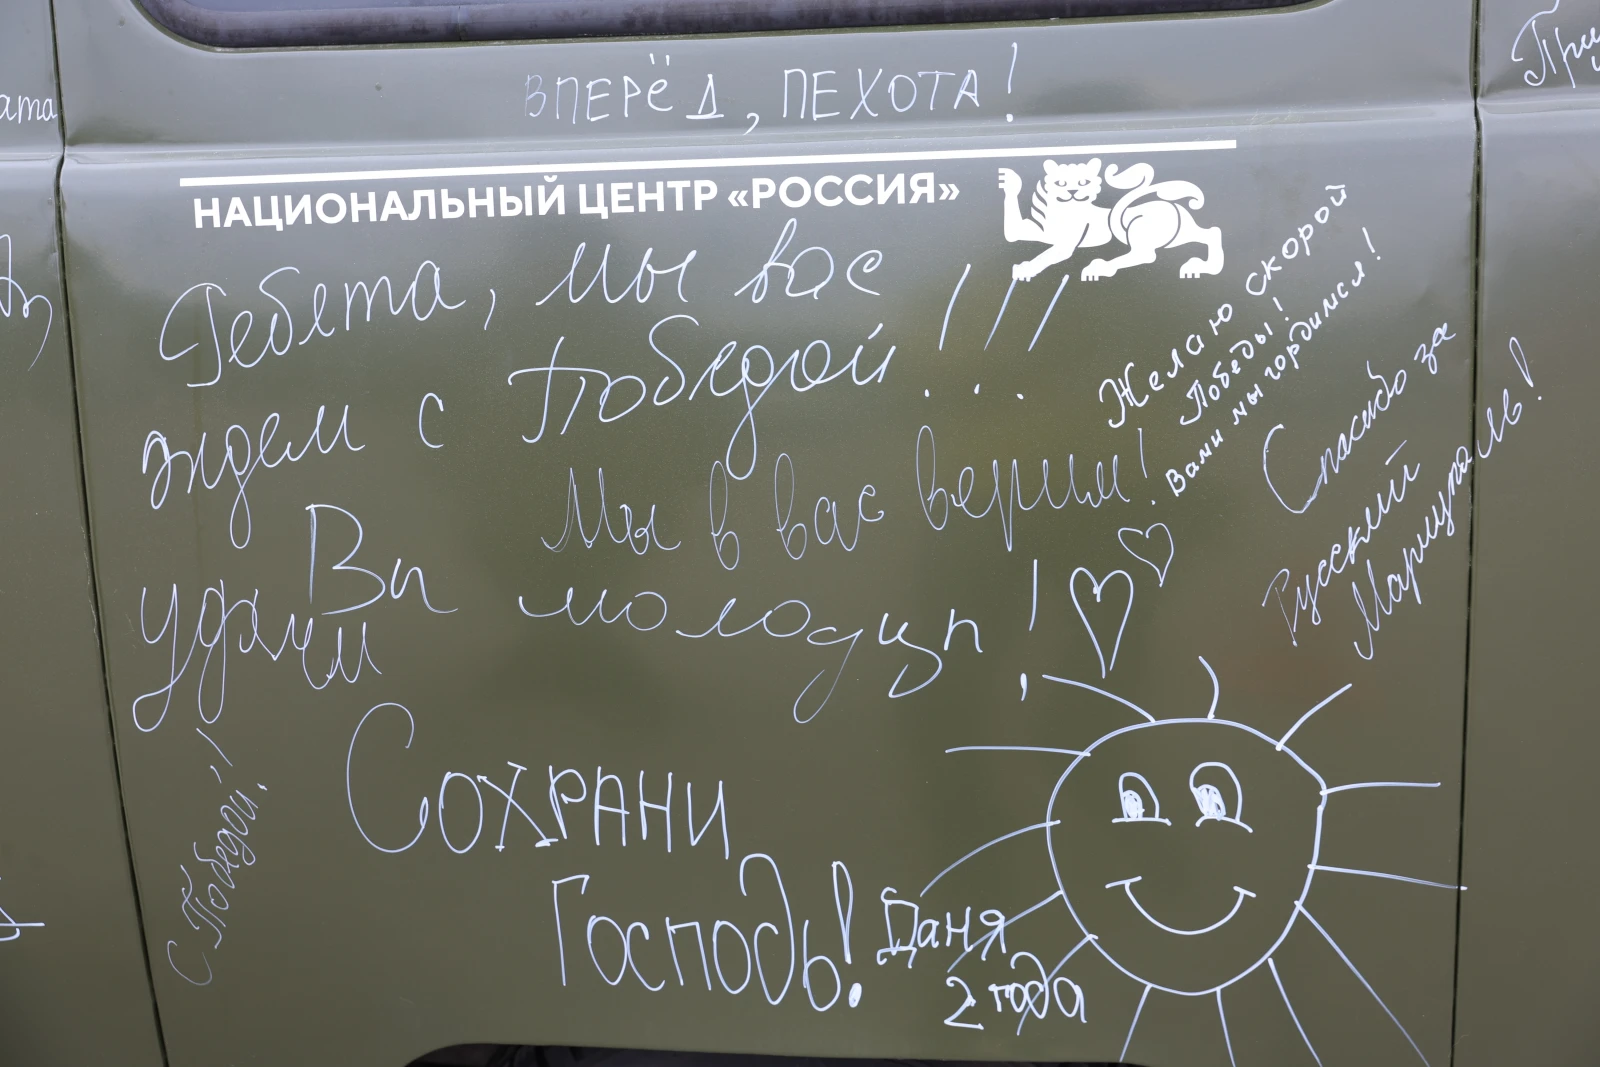 ВПЕРЁД, ПЕХОТА!
НАЦИОНАЛЬНЫЙ ЦЕНТР «РОССИЯ»
Ребята, мы вас
ждем с Победой!!!
Мы в вас верим!
Желаю скорой
Победы!
Вами мы гордимся!
Спасибо за
Русский
Мариуполь!
удачи
Вы молодцы!
С Победой!!
Сохрани
Господь!
Даня
2 года
ата
При